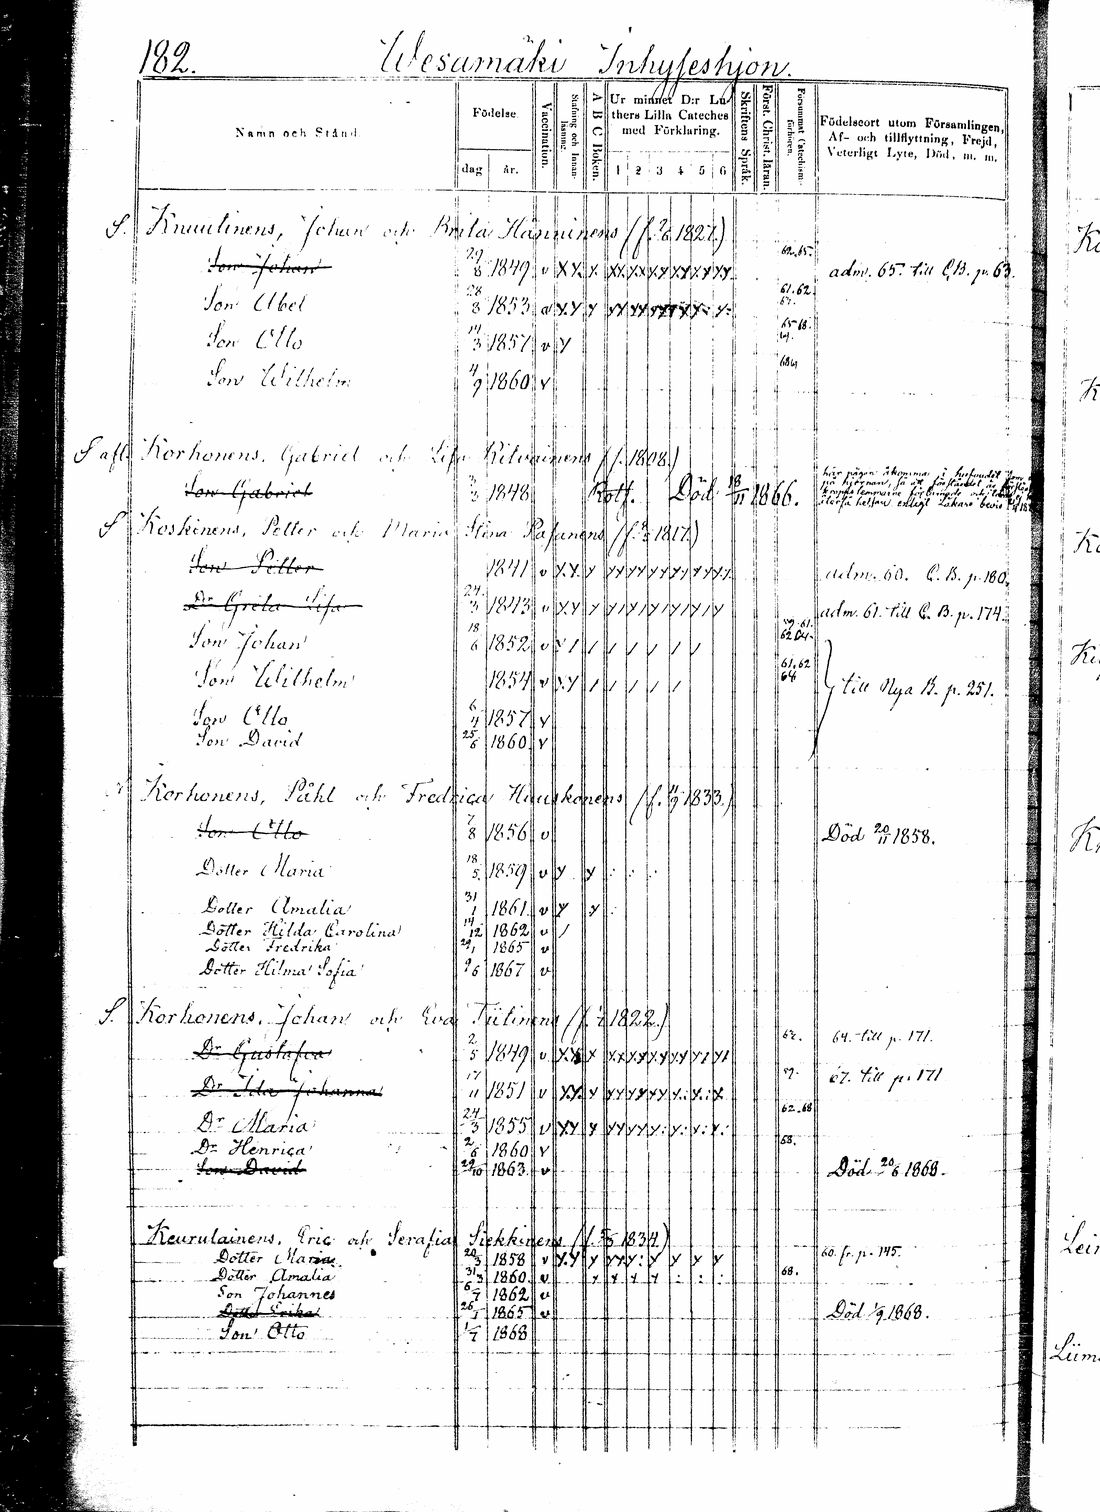 182. Wesamäki Inhyseshjon.
Namn och Stånd.
Födelse
dag år.
Vaccination.
Stafning och Innanläsning.
A B C Boken.
Ur minnet D:r Luthers Lilla Cateches med Förklaring.
1 2 3 4 5 6
Skriftens Språk.
Först. Christ. läran.
Försummat Catechismiförhören.
Födelseort utom Församlingen,
Af- och tillflyttning, Frejd,
Veterligt Lyte, Död, m. m.
S. Knuutinens, Johan och Brita Hänninens (f. 1827.)
Son Johan 29/8 1849 v 62.65. adm. 65. till C.B. p. 63.
Son Abel 28/8 1853 61.62
Son Otto 14/3 1857 v
Son Wilhelm 4/9 1860 v
S afl. Korhonens, Gabriel och Lisa (f. 1808.)
Son Gabriel 3/3 1848 Rotf. Död 18/11 1866.
S Koskinens, Petter och Maria Stina (f. 1817.)
Son Petter 1841 v adm. 60. C. B. p. 180.
Dr Greta Lisa 24/3 1843 v adm. 61. till C. B. p. 174.
Son Johan 18/6 1852 v
Son Wilhelm 1854 v 61.62 64 till Nya B. p. 251.
Son Otto 6/4 1857 v
Son David 25/6 1860 v
Korhonens, Påhl och Fredrica Hauskonens (f. 11/9 1833.)
Son Otto 7/8 1856 v Död 20/11 1858.
Dotter Maria 18/5 1859 v
Dotter Amalia 31/1 1861 v
Dotter Hilda Carolina 14/12 1862 v
Dotter Fredrika 29/1 1865 v
Dotter Hilma Sofia 9/6 1867 v
S. Korhonens, Johan och Eva Tiitinens (f. 1822.)
Dr Gustafva 2/5 1849 v 64. till p. 171.
Dr Ida Johanna 17/11 1851 v 67. till p. 171
Dr Maria 24/3 1855 v 62.68
Dr Henrica 2/6 1860 v 68.
Son David 29/10 1863 v Död 20/6 1868.
Keurulainens, Eric och Serafia Siekkinens (f. 1834)
Dotter Maria 20/3 1858 v 60. fr. p. 145.
Dotter Amalia 31/3 1860 v 68.
Son Johannes 6/7 1862 v
Dotter Erika 26/1 1865 v Död 1/9 1868.
Son Otto 1/7 1868